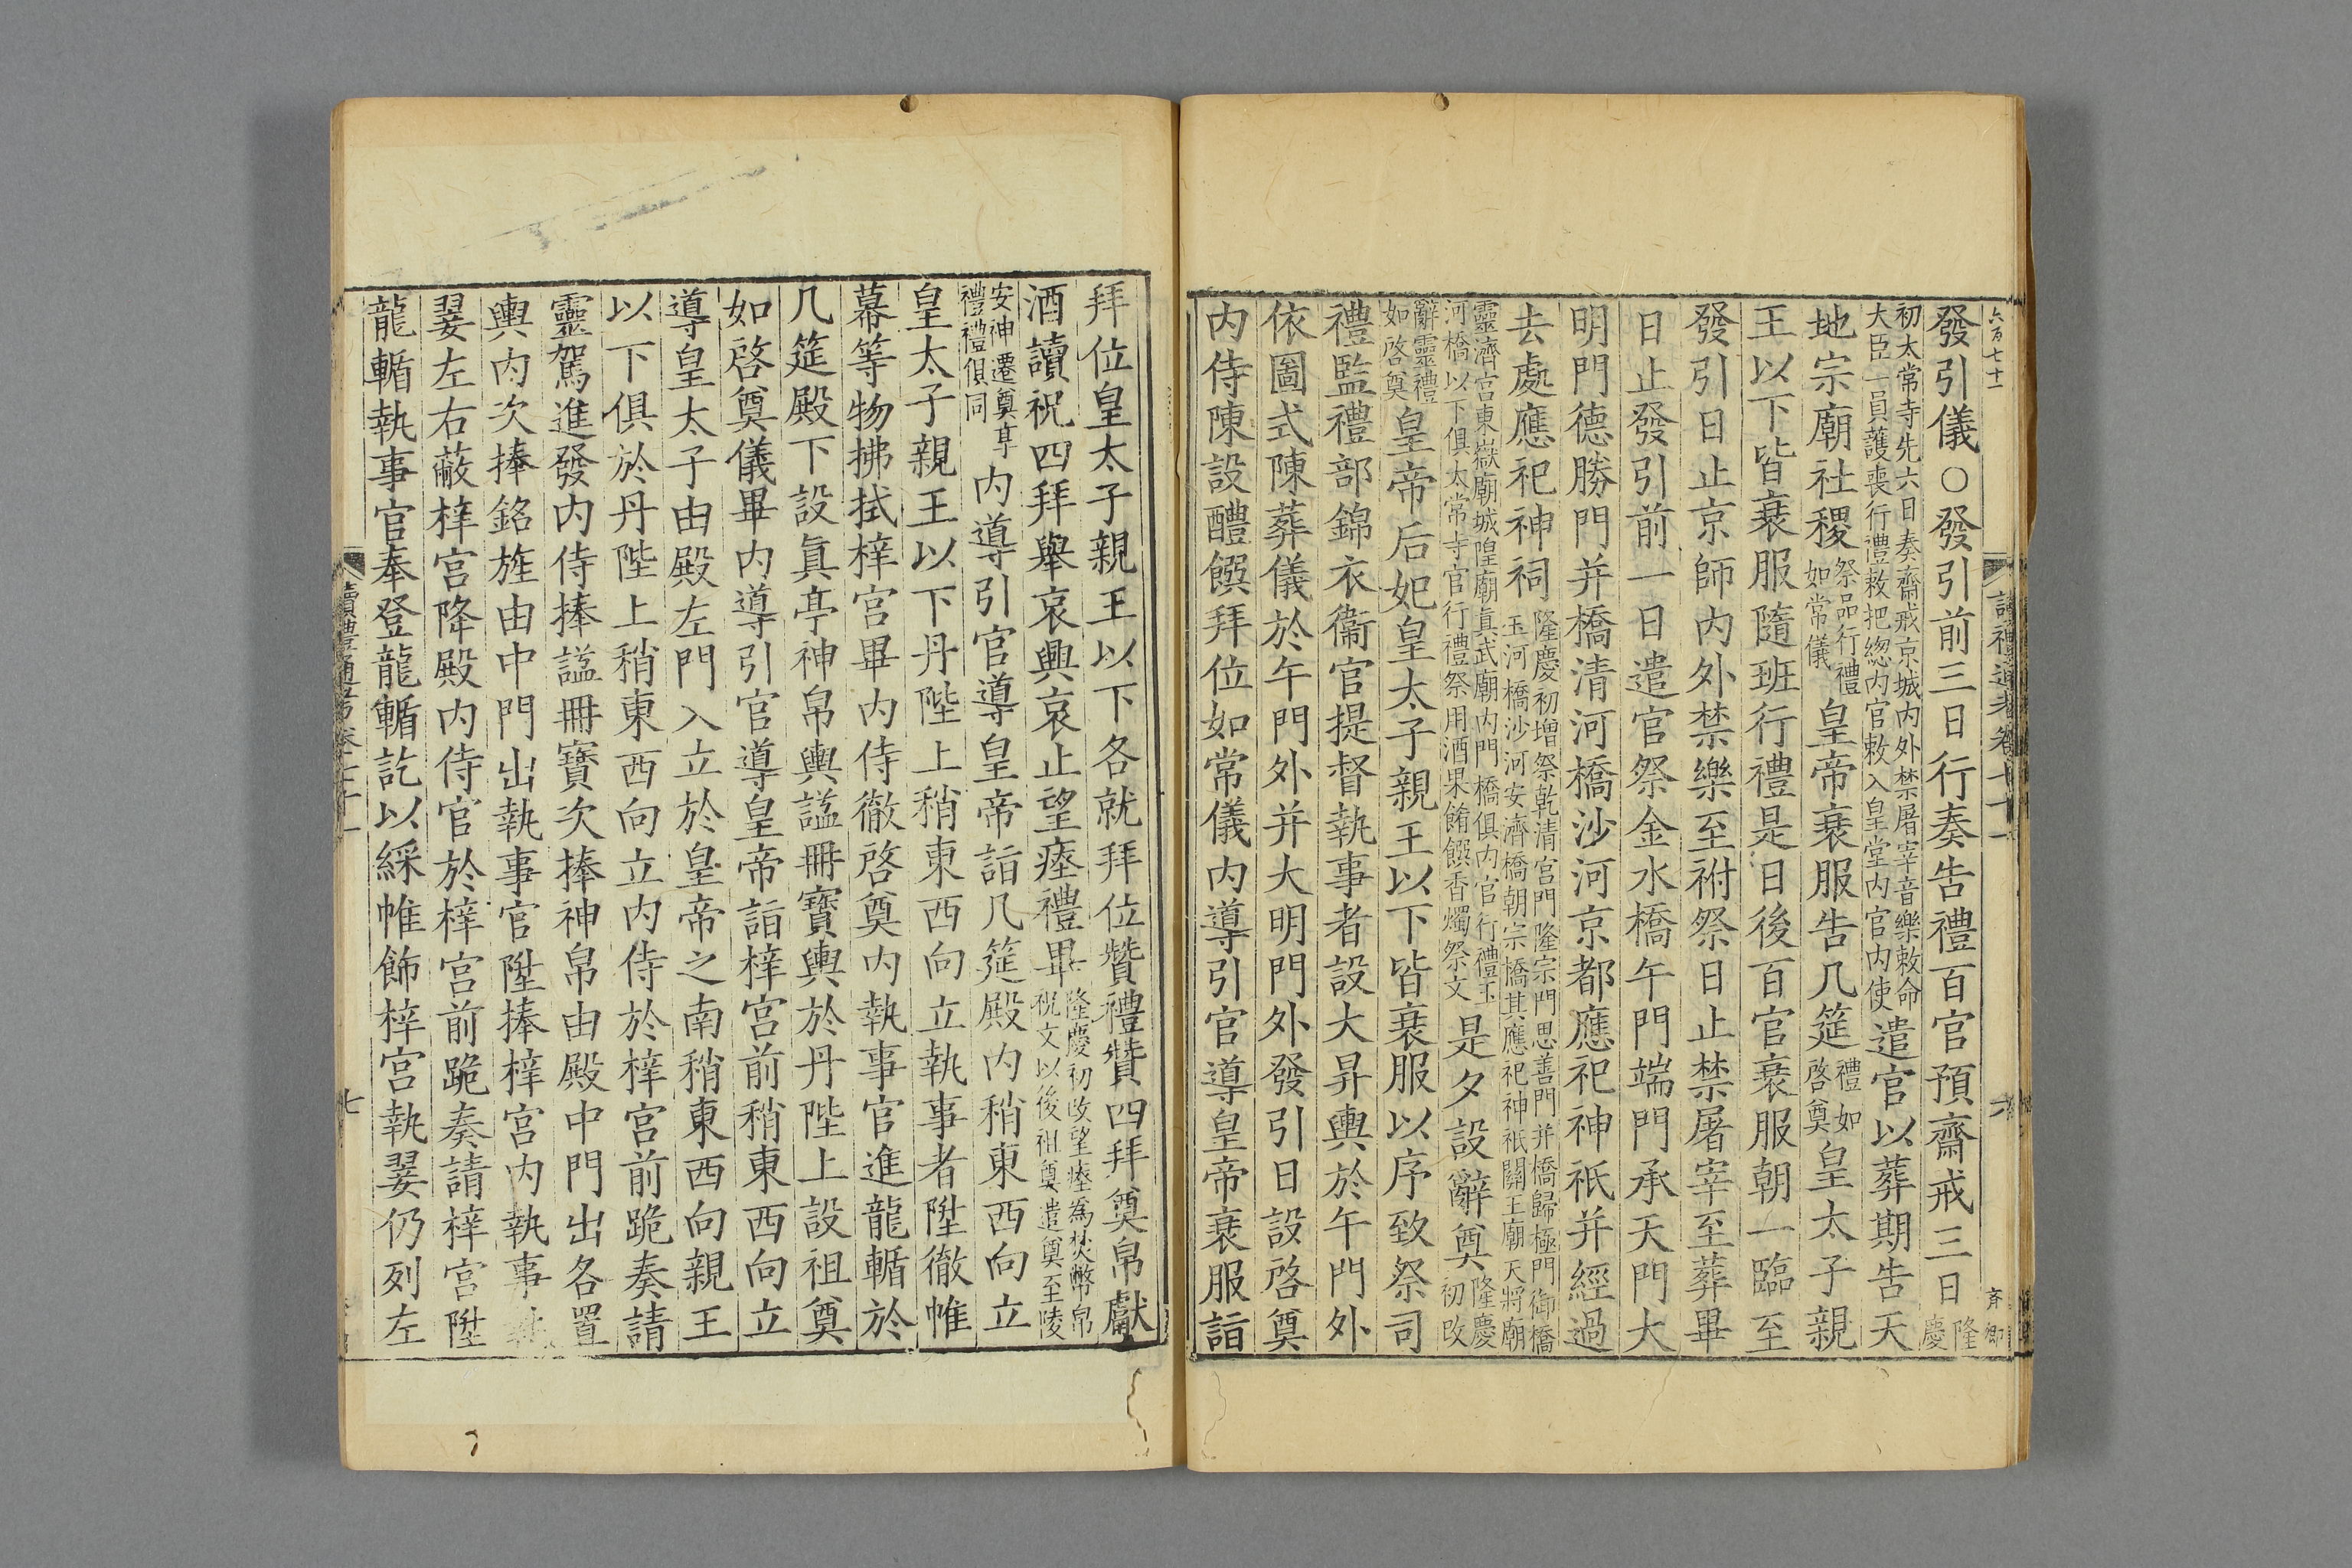 六百七十一
讀禮通考卷七十一
六
發引儀○發引前三日行奏告禮百官預齋戒三日隆慶
初太常寺先六日奏齋戒京城內外禁屠宰音樂敕命
大臣一員護喪行禮敕把總內官敕入皇堂內官內使遣官以葬期告天
地宗廟社稷祭品行禮如常儀皇帝衰服告几筵禮如啓奠皇太子親
王以下皆衰服隨班行禮是日後百官衰服朝一臨至
發引日止京師內外禁樂至祔祭日止禁屠宰至葬畢
日止發引前一日遣官祭金水橋午門端門承天門大
明門德勝門并橋清河橋沙河京都應祀神祇并經過
去處應祀神祠隆慶初增祭乾清宮門隆宗門思善門并橋歸極門御橋
玉河橋沙河安濟橋朝宗橋其應祀神祇關王廟天將廟
靈濟宮東嶽廟城隍廟真武廟內門橋俱內官行禮玉
河橋以下俱太常寺官行禮祭用酒果餚饌香燭祭文是夕設辭奠隆慶初改
辭靈禮如啓奠皇帝后妃皇太子親王以下皆衰服以序致祭司
禮監禮部錦衣衞官提督執事者設大昇輿於午門外
依圖式陳葬儀於午門外并大明門外發引日設啓奠
內侍陳設醴饌拜位如常儀內導引官導皇帝衰服詣
拜位皇太子親王以下各就拜位贊禮贊四拜奠帛獻
酒讀祝四拜舉哀興哀止望瘞禮畢隆慶初改望瘞為焚幣帛
祝文以後祖奠遣奠至陵
安神遷奠享禮禮俱同內導引官導皇帝詣几筵殿內稍東西向立
皇太子親王以下丹陛上稍東西向立執事者陞徹帷
幕等物拂拭梓宮畢內侍徹啓奠內執事官進龍輴於
几筵殿下設眞亭神帛輿諡冊寶輿於丹陛上設祖奠
如啓奠儀畢內導引官導皇帝詣梓宮前稍東西向立
導皇太子由殿左門入立於皇帝之南稍東西向親王
以下俱於丹陛上稍東西向立內侍於梓宮前跪奏請
靈駕進發內侍捧諡冊寶次捧神帛由殿中門出各置
輿內次捧銘旌由中門出執事官陞捧梓宮內執事
翣左右蔽梓宮降殿內侍官於梓宮前跪奏請梓宮陞
龍輴執事官奉登龍輴訖以綵帷飾梓宮執翣仍列左
讀禮通考卷七十一
七